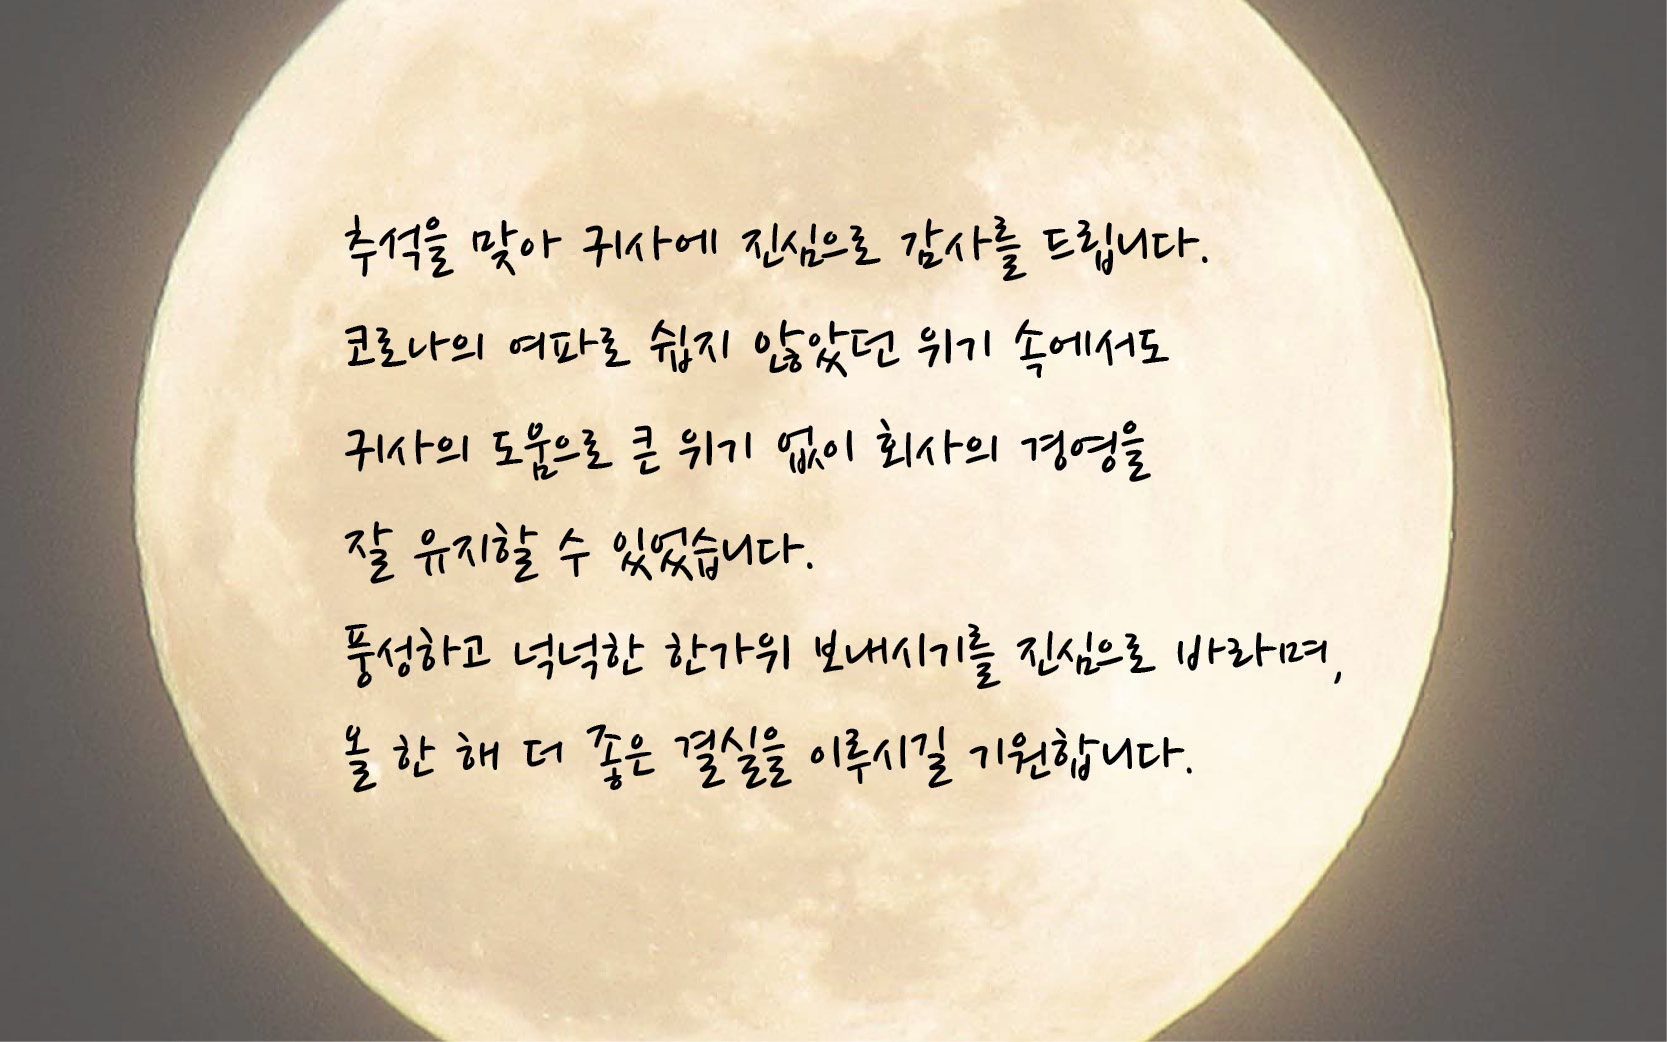 추석을 맞아 귀사에 진심으로 감사를 드립니다.
코로나의 여파로 쉽지 않았던 위기 속에서도
귀사의 도움으로 큰 위기 없이 회사의 경영을
잘 유지할 수 있었습니다.
풍성하고 넉넉한 한가위 보내시기를 진심으로 바라며,
올 한 해 더 좋은 결실을 이루시길 기원합니다.